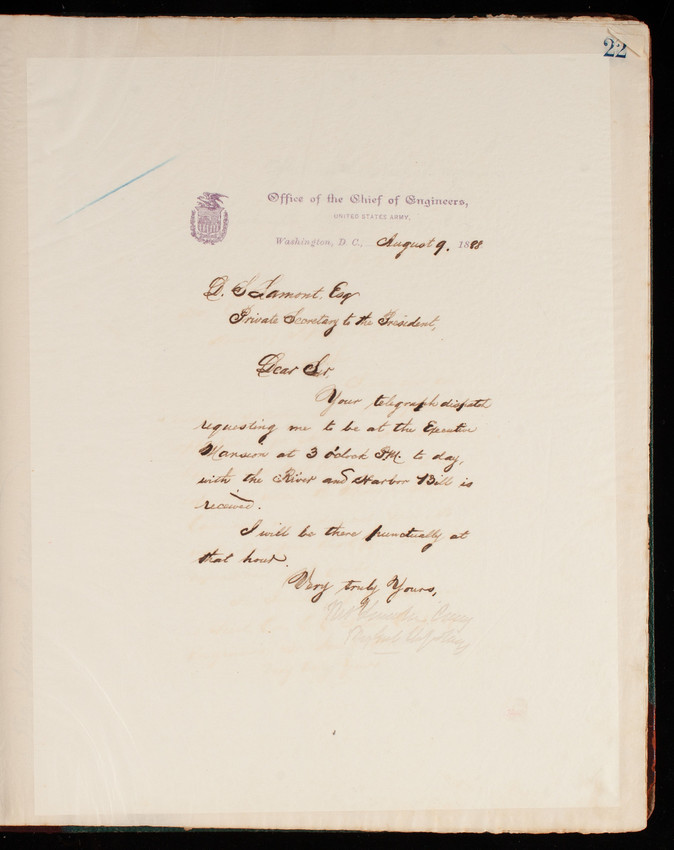 22
Office of the Chief of Engineers,
UNITED STATES ARMY.
Washington, D. C., August 9. 1888
D. S Lamont. Esq
Private Secretary to the President,
Dear Sir.
Your telegraph dispatch
requesting me to be at the Executive
Mansion at 3 o'clock P.M. to day,
with the River and Harbor Bill is
received.
I will be there punctually at
that hour.
Very truly Yours,